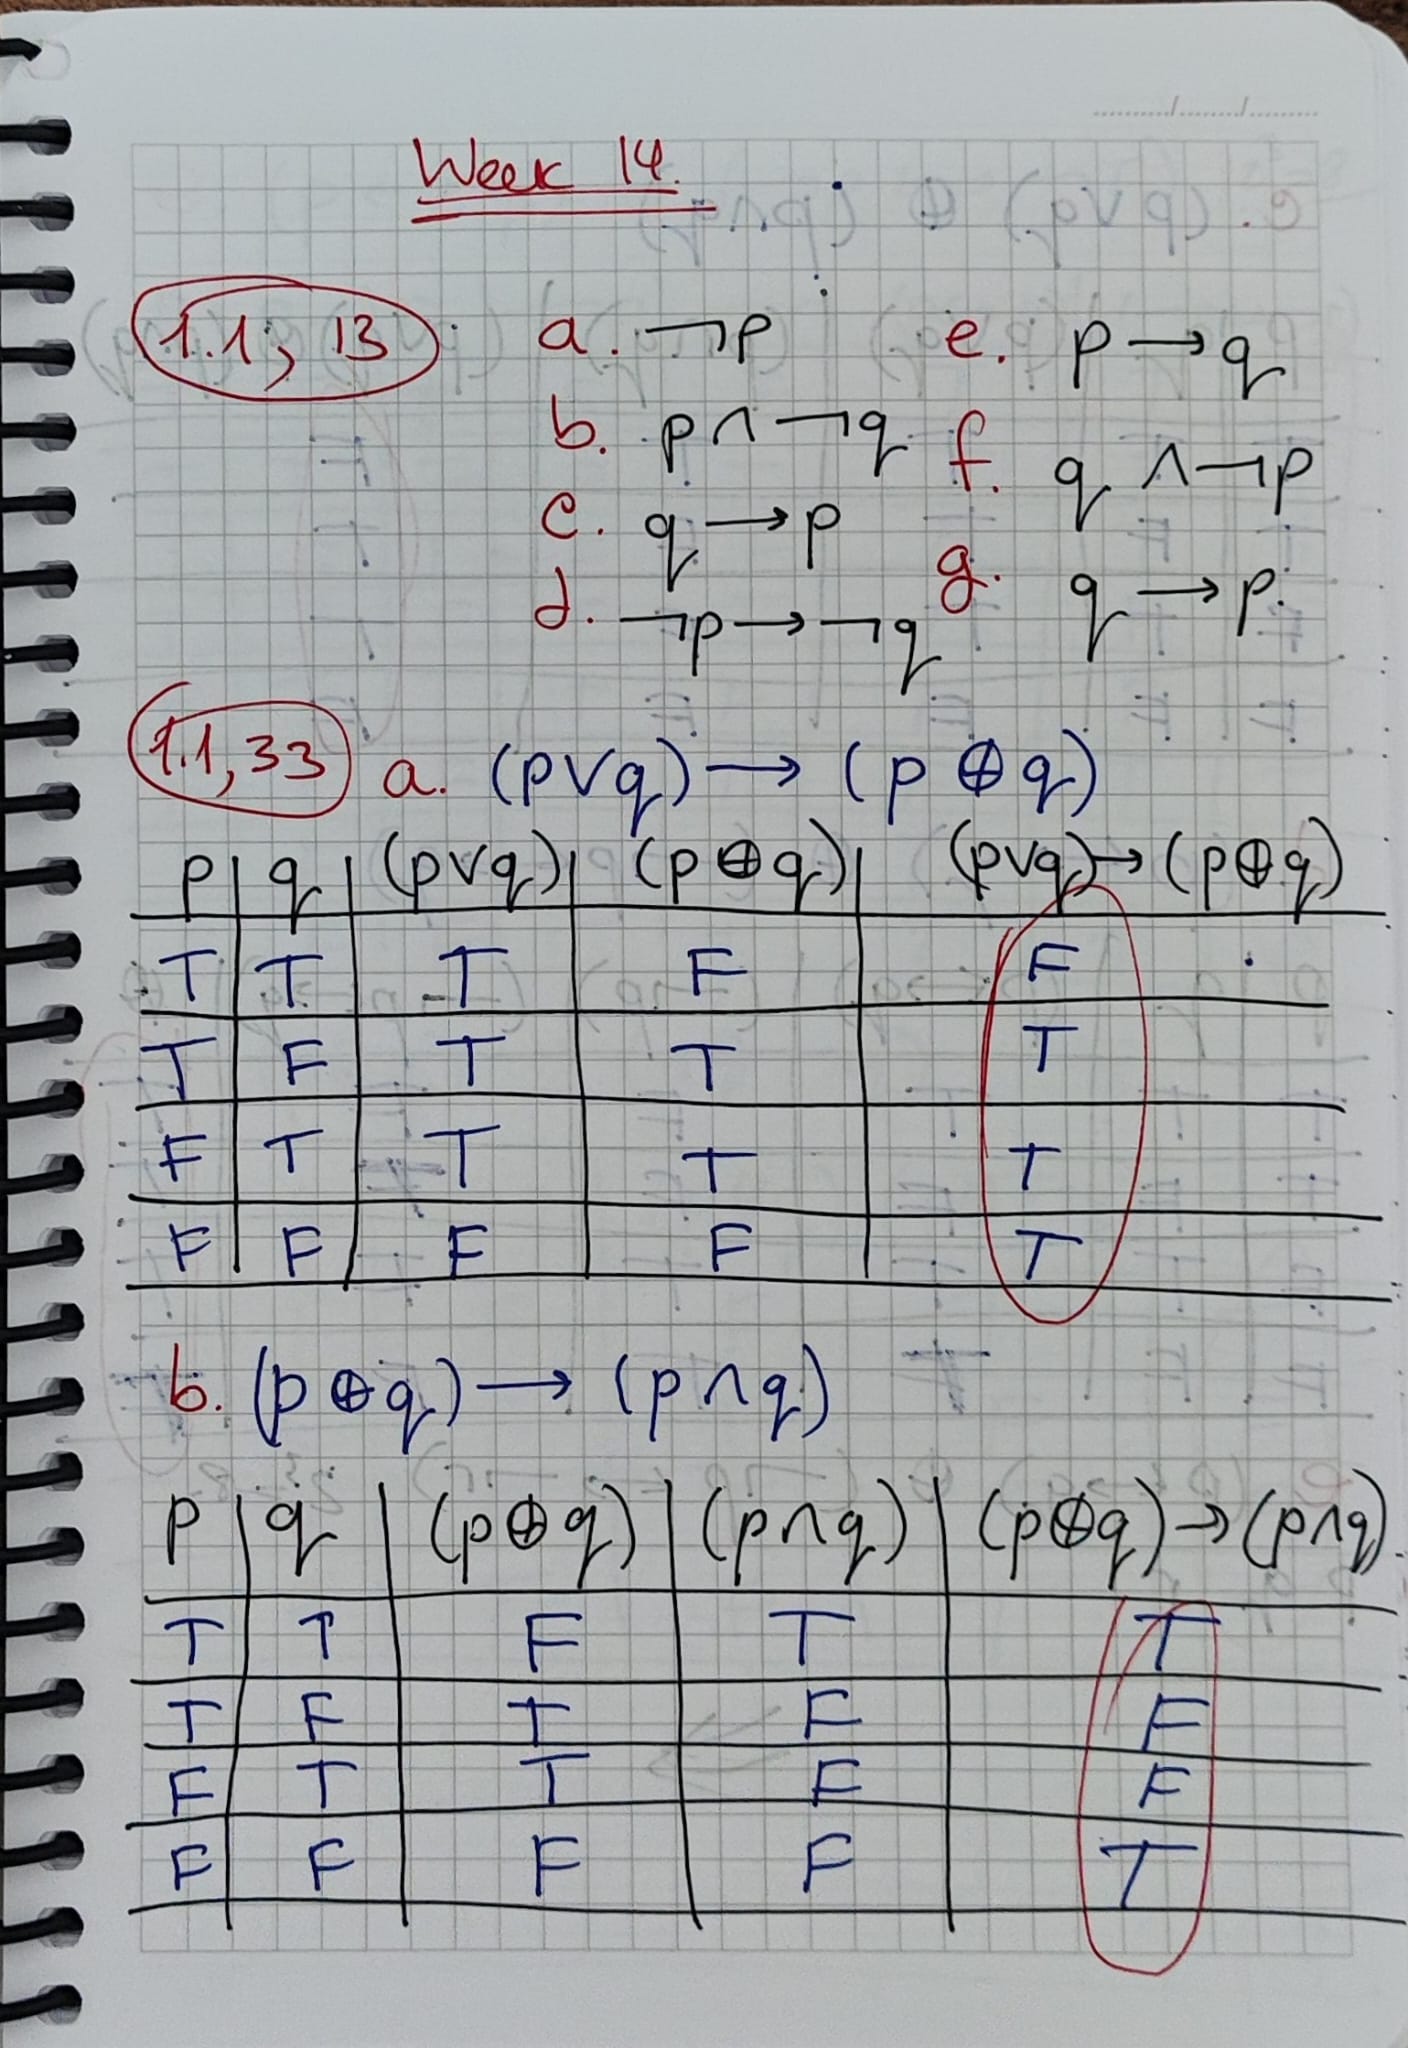 Week 14.
1.1, 13 a. ¬p e. p → q
b. p ∧ ¬q f. q ∧ ¬p
c. q → p g. q → p.
d. ¬p → ¬q
1.1, 33 a. (p ∨ q) → (p ⊕ q)
p q (p ∨ q) (p ⊕ q) (p ∨ q) → (p ⊕ q)
T T T F F
T F T T T
F T T T T
F F F F T
b. (p ⊕ q) → (p ∧ q)
p q (p ⊕ q) (p ∧ q) (p ⊕ q) → (p ∧ q)
T T F T T
T F T F F
F T T F F
F F F F T